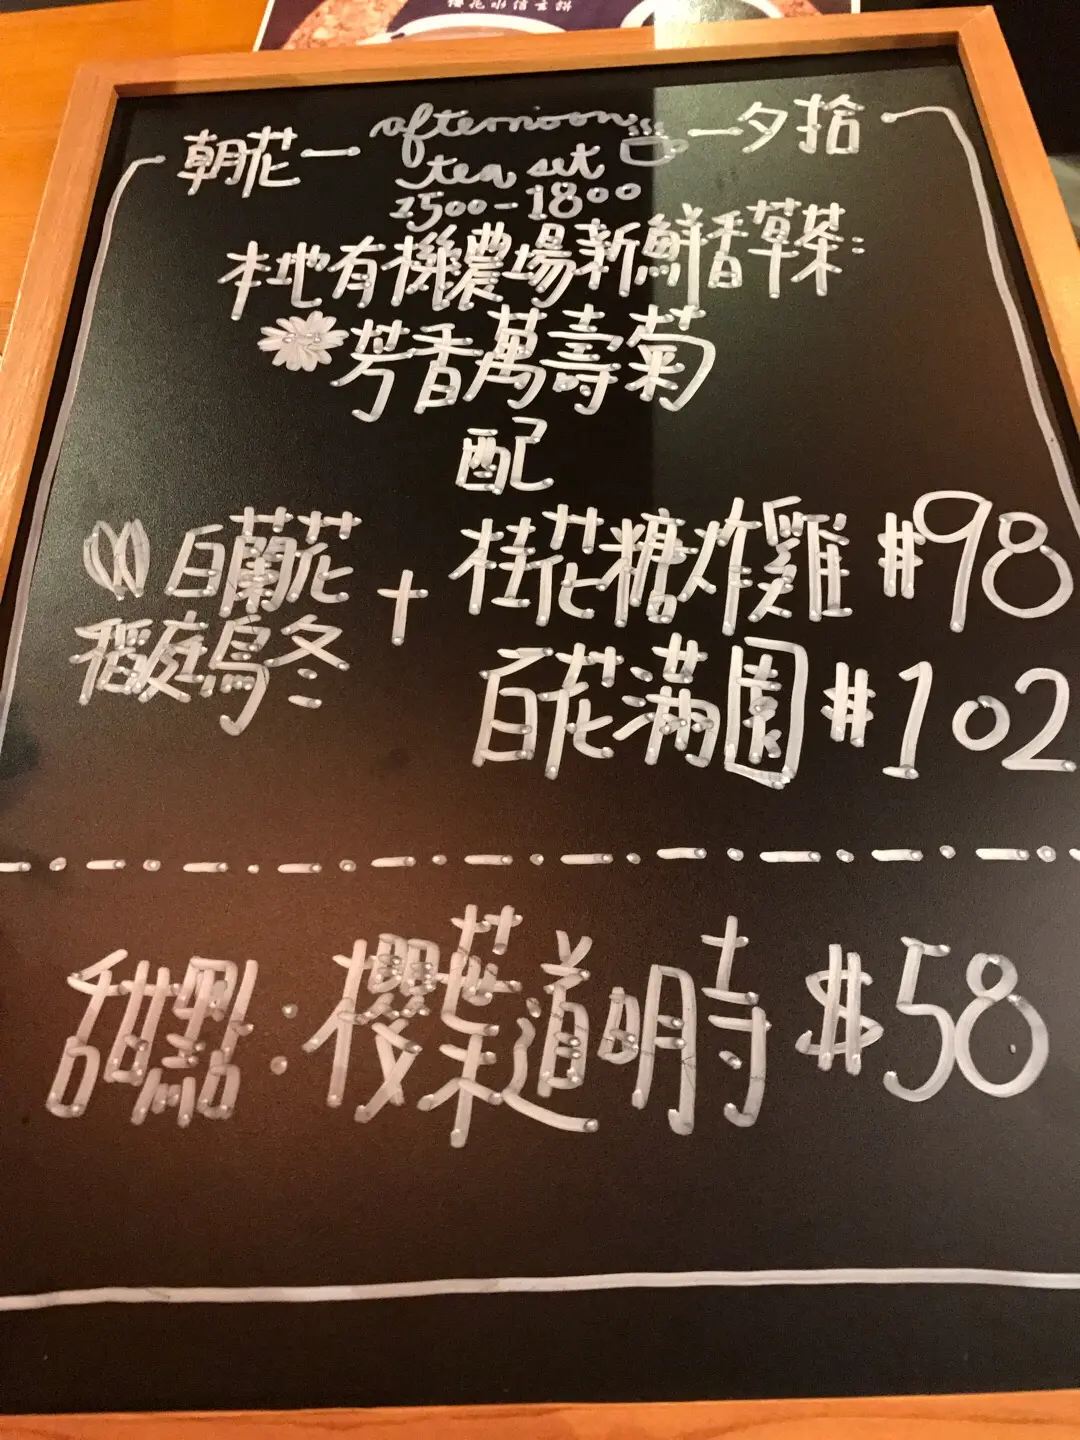 櫻花水信玄餅
朝花 — afternoon — 夕拾
tea set
1500-1800
本地有機農場新鮮香草茶:
芳香萬壽菊
配
白蘭花 + 桂花糖炸雞 #98
稻庭烏冬
百花滿園 #102
甜點:櫻葉道明寺 $58